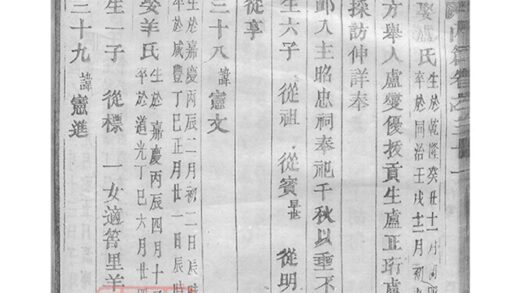 卷之三十一
氏 生於乾隆癸丑十一月
卒於同治壬戌十二月初
方舉人盧燮優拔貢生盧正珩盧
採訪仲詳奉
卹入主昭忠祠奉祀千秋以垂不
生六子 從祖 從賓 從明
從享
三十八 諱憲文
生於嘉慶丙辰二月初二日辰時
卒於咸豐丁巳正月廿一日辰時
娶羊氏 生於嘉慶丙辰四月十
卒於道光丁巳六月廿
生一子 從標 一女適管里羊
三十九 諱憲進